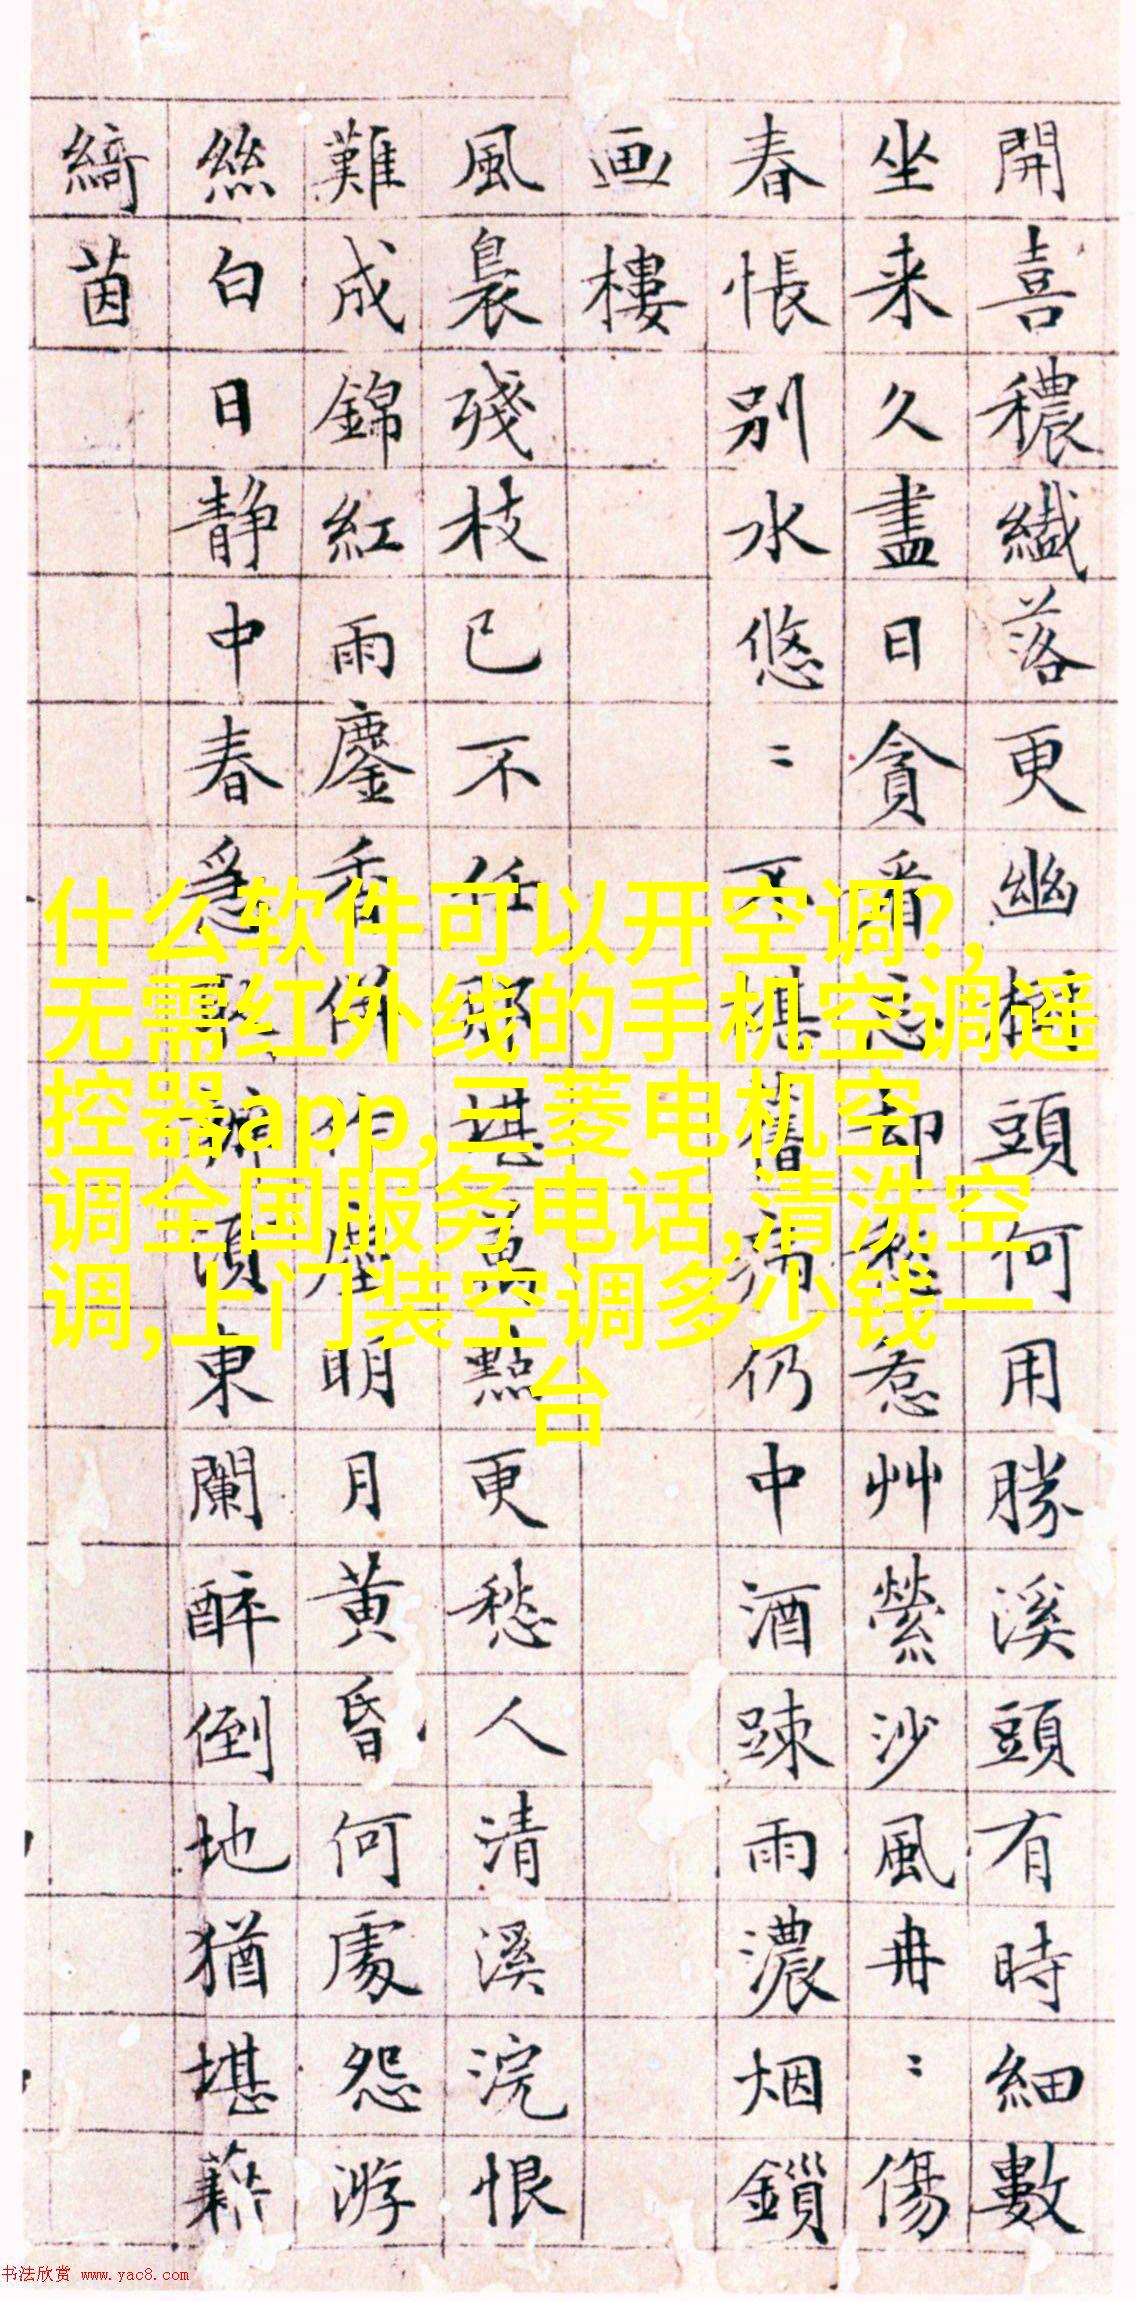 開喜穠纎落更幽頭何用勝溪頭有時細數
坐来久盡日貪看忘却愁惹艸縈沙風冉〻傷
春悵別水悠〻不堪舊病仍中酒踈雨濃烟鎖
画樓
風裊殘枝已不任那堪萬點更愁人清溪浣恨
難成錦紅雨鏖香併作塵明月黄昏何處怨游
絲白日静中春須東闌醉倒地猶堪藉
綺茵
什么软件可以开空调?,
无需红外线的手机空调遥
控器app,三菱电机空
调全国服务电话,清洗空
调,上门装空调多少钱一
台
书法欣赏 www.yac8.com